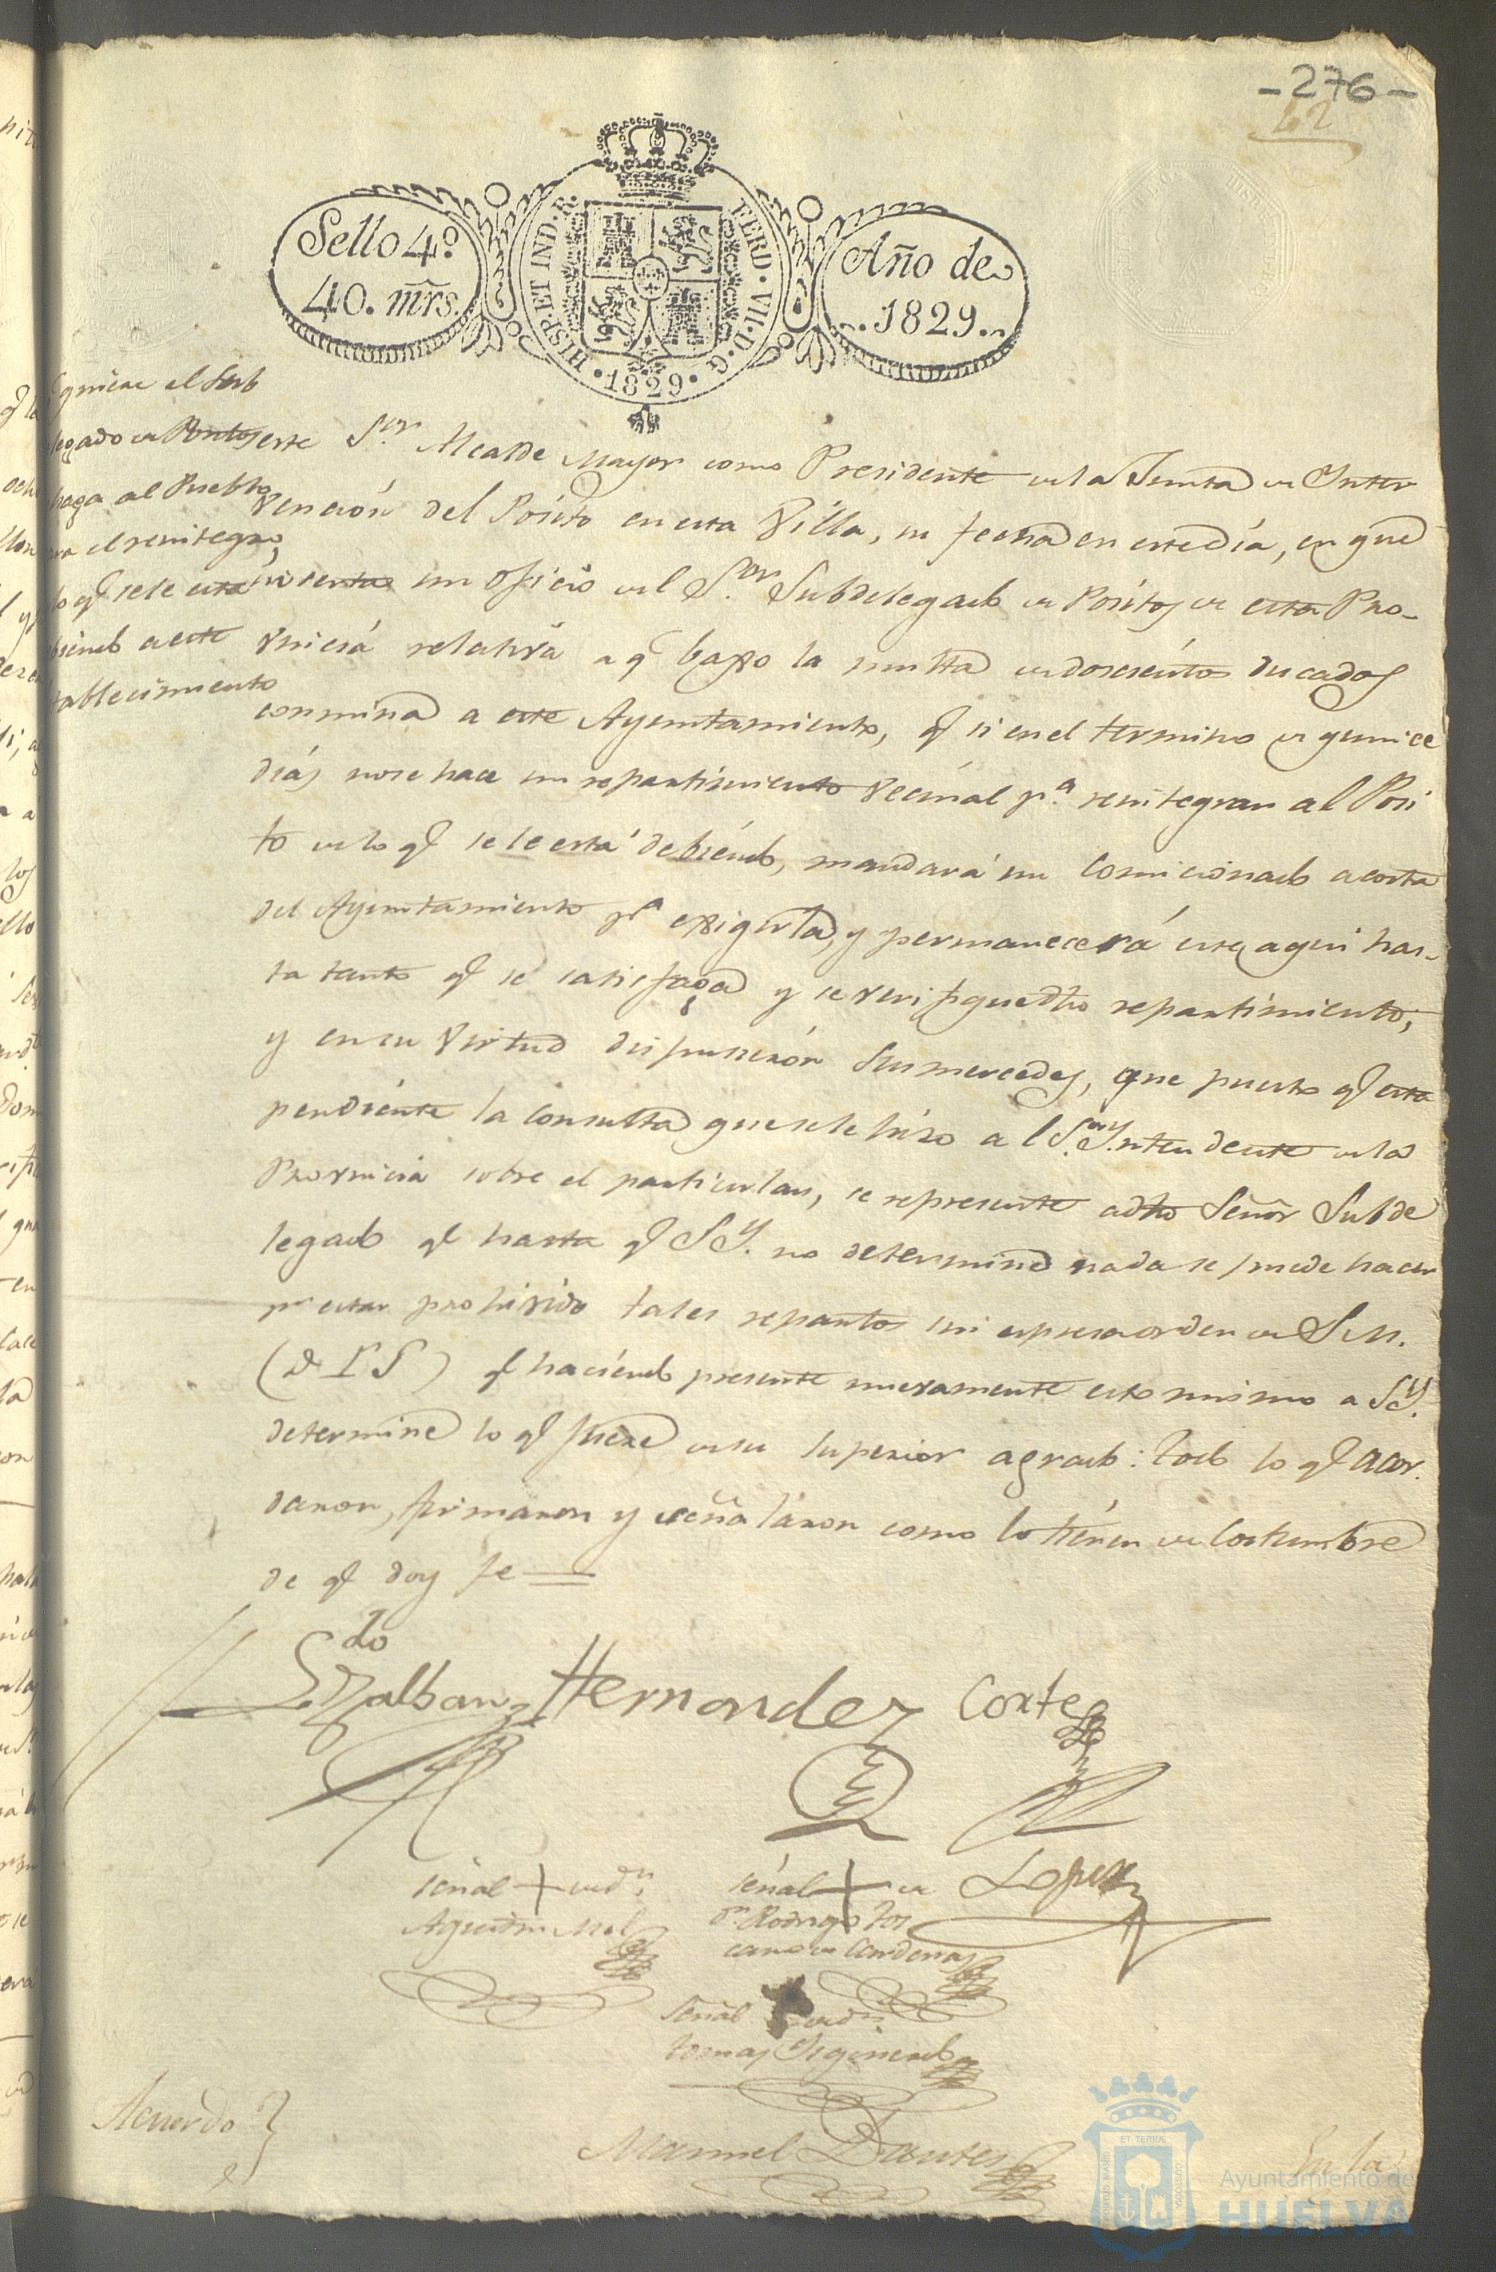 -276-
62
Sello 4º
40. mrs.
HISP. ET IND. R.
FERD. VII. D. G.
• 1829 •
Año de
1829.
quiere el Sub
legado de Positos
haga al Pueblo
para el reintegro
lo q.e se le está
debiendo a este
tablecimiento
este S.or Alcalde mayor como Presidente de la Junta de Inter
vención del Pósito en esta Villa, su fecha en este día, en que
inserta un oficio del S.or Subdelegado de Pósitos de esta Pro-
vincia relativa a q.e baxo la multa de doscientos ducados
conmina a este Ayuntamiento, q.e si en el termino de quince
días no se hace un repartimiento vecinal p.a reintegrar al Posi
to de lo q.e se le está debiendo, mandará un Comicionado a costa
del Ayuntamiento p.a exigirla, y permanecerá este aqui has-
ta tanto q.e se satisfaga y se verifique dho repartimiento;
y en su virtud dispusieron Sus mercedes, que puesto q.e esta
pendiente la consulta que se le hizo al S.or Yntendente de la
Provincia sobre el particular, se represente a dho Señor Subde
legado q.e hasta q.e S.Y. no determine nada se puede hacer
p.r estar prohivido tales repartos sin espresa orden de S.M.
(D L G) q.e haciendo presente nuevamente esto mismo a S.Y.
determine lo q.e fuere de su superior agrado: todo lo q.e acor.
daron, firmaron y señalaron como lo tienen de Costumbre
de q.e doy fe
L.do Villalbam Hernandez Corte
señal + de d.n
Agustin Mel
señal + de
d.n Rodrigo Tos
cano de Cardenas
Lopez
Señal de d.n
tomas Ysquierdo
Manuel Dantes
Acuerdo
En la
ET TERRÆ
CUSTODIA
Ayuntamiento de
HUELVA